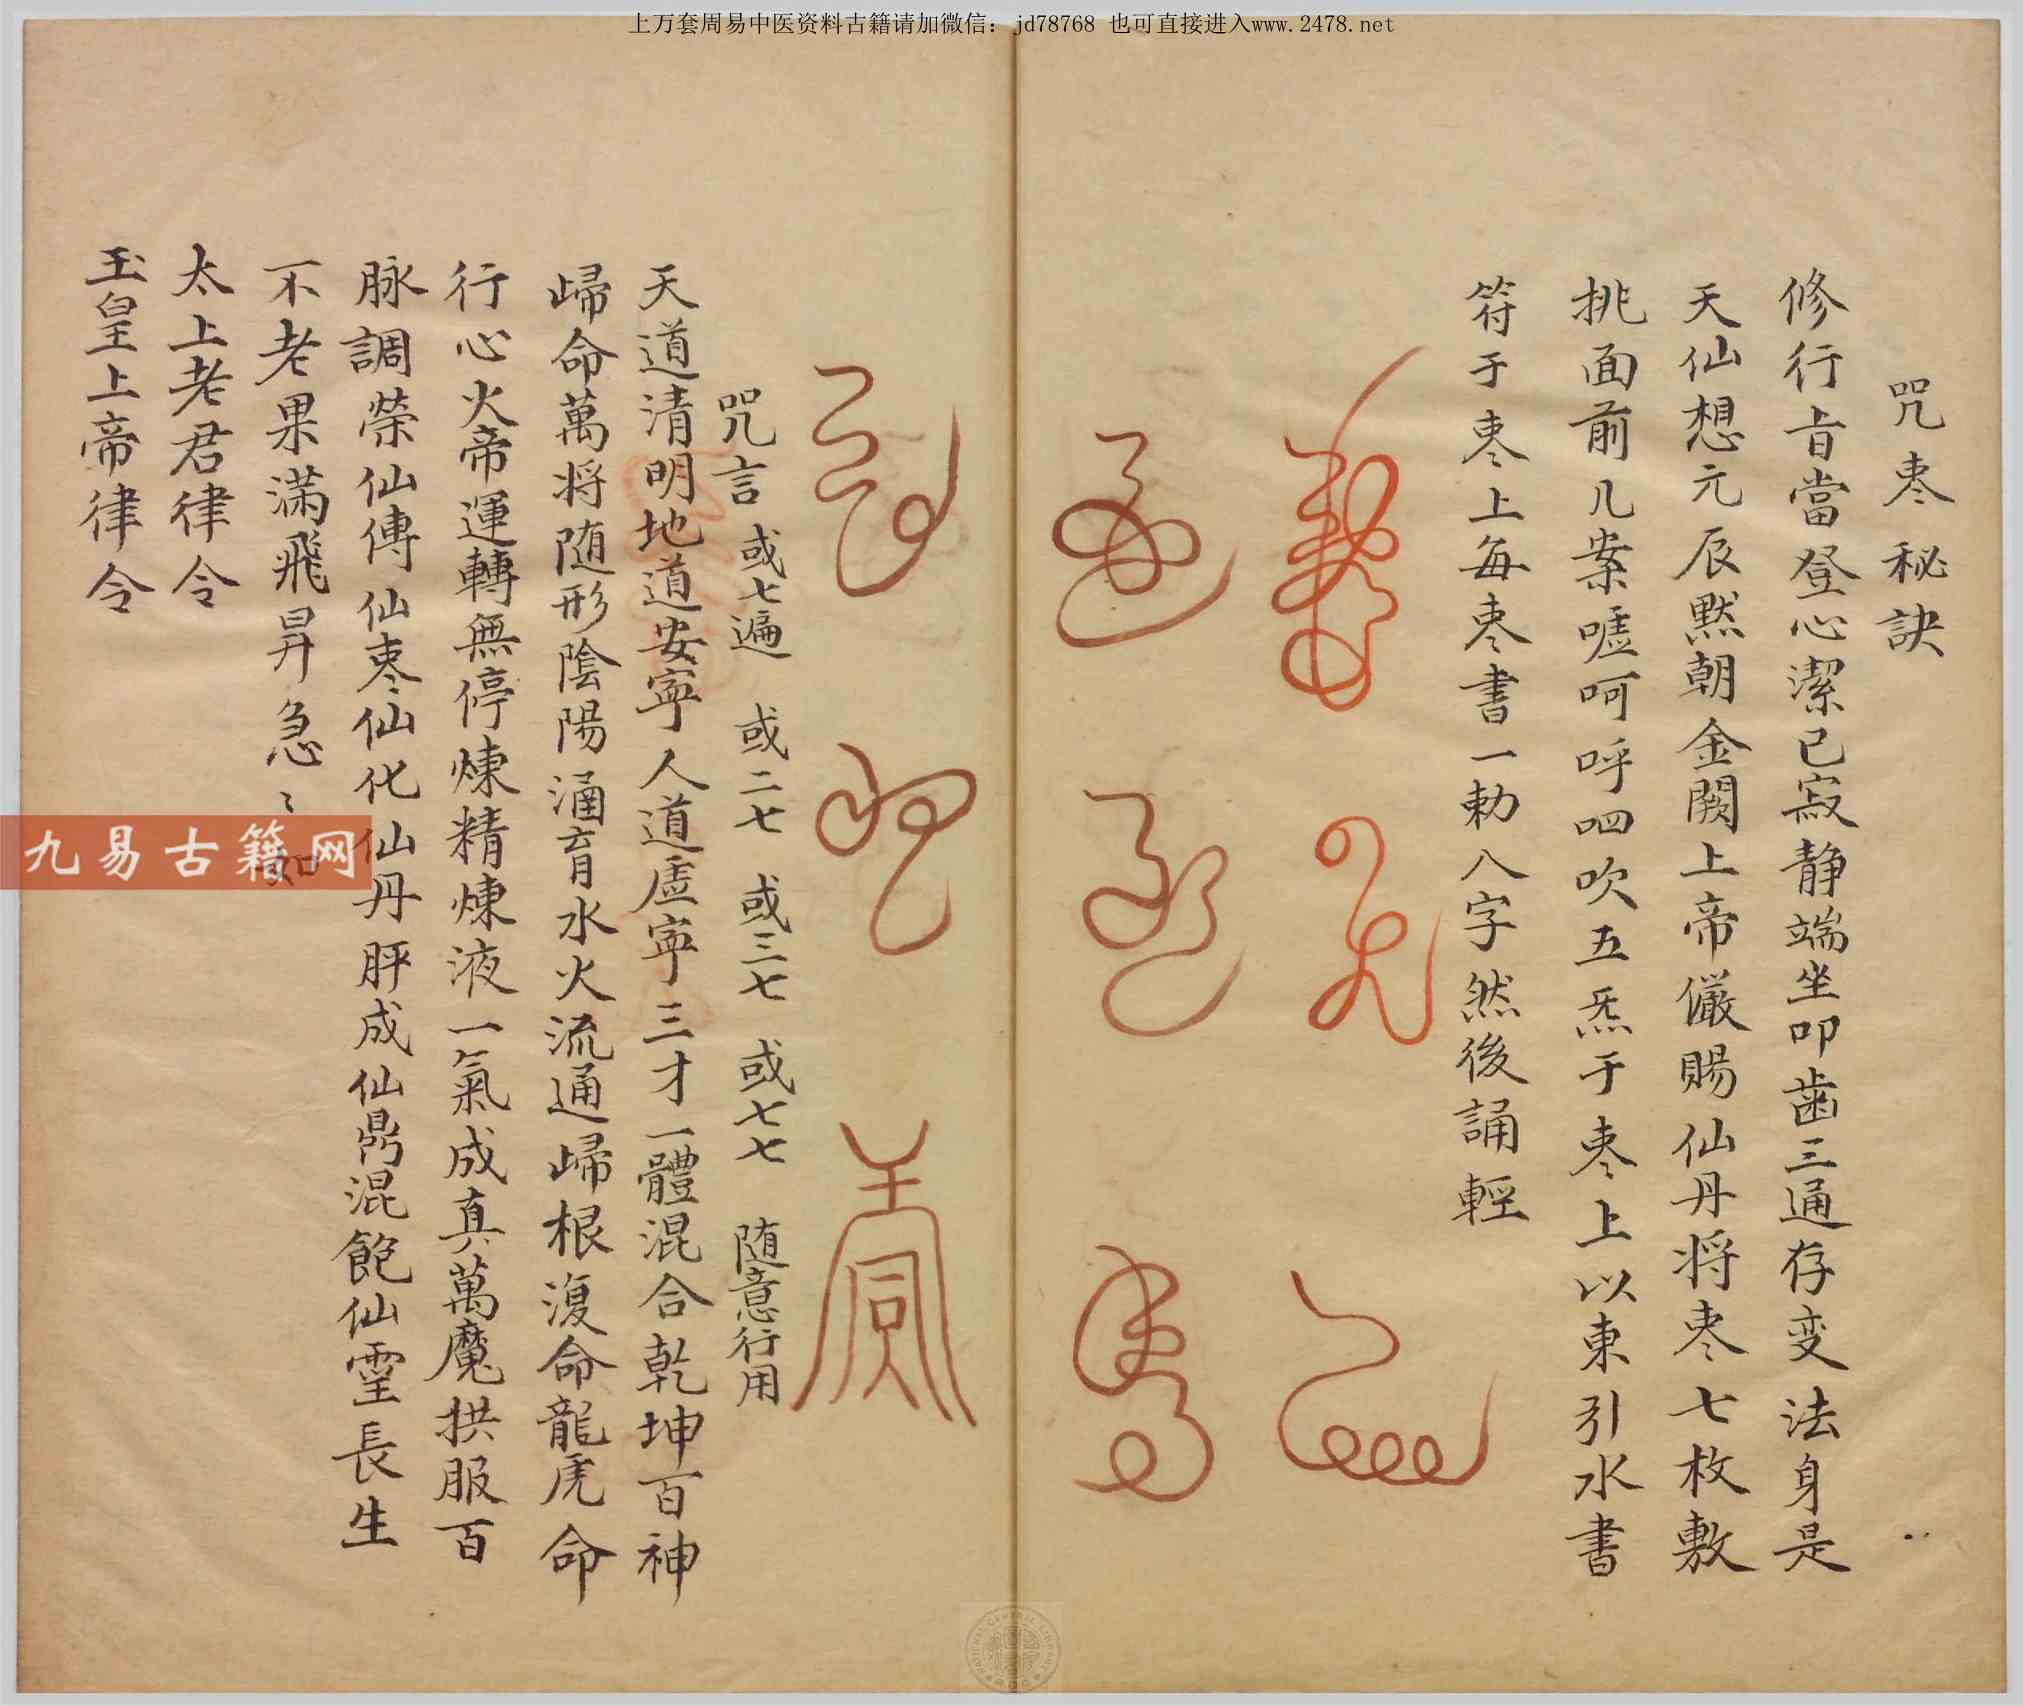 上万套周易中医资料古籍请加微信：jd78768 也可直接进入www.2478.net
咒枣秘訣
修行旨當登心潔已寂静端坐叩齒三通存变法身是
天仙想元辰默朝金闕上帝儼賜仙丹将枣七枚敷
挑面前几案嘘呵呼呬吹五炁于枣上以東引水書
符于枣上每枣書一勅八字然後誦輕
咒言 或七遍 或二七 或三七 或七七 随意行用
天道清明地道安寧人道虛寧三才一體混合乾坤百神
歸命萬将随形陰陽涵育水火流通歸根復命龍虎命
行心火帝運轉無停煉精煉液一氣成真萬魔拱服百
脉調榮仙傳仙枣仙化仙丹胚成仙鼎混飽仙霊長生
不老果滿飛昇急〻如
太上老君律令
玉皇上帝律令
九易古籍网